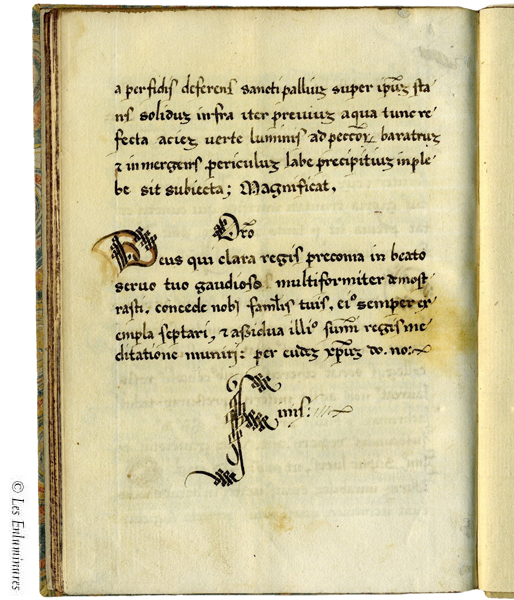 a perfidis deferens sancti palliuʒ super ip̃uʒ sta
ns solidus infra iter preuiuʒ aqua tunc re
fecta acieʒ uerte luminis ad peccõꝝ baratruʒ
⁊ inmergens periculus labe precipitiuʒ in ple
be sit subiecta; Magnificat.
Or̃o
Deus qui clara regis preconia in beato
seruo tuo gaudioso multiformiter demõst
rasti. concede nobis famĩlis tuis. eiꝰ semper ex
empla sectari, ⁊ assidua illiꝰ summi regis me
ditatione muniri: per eũdeʒ xp̃uʒ do. no:
Finis:
© Les Enluminures